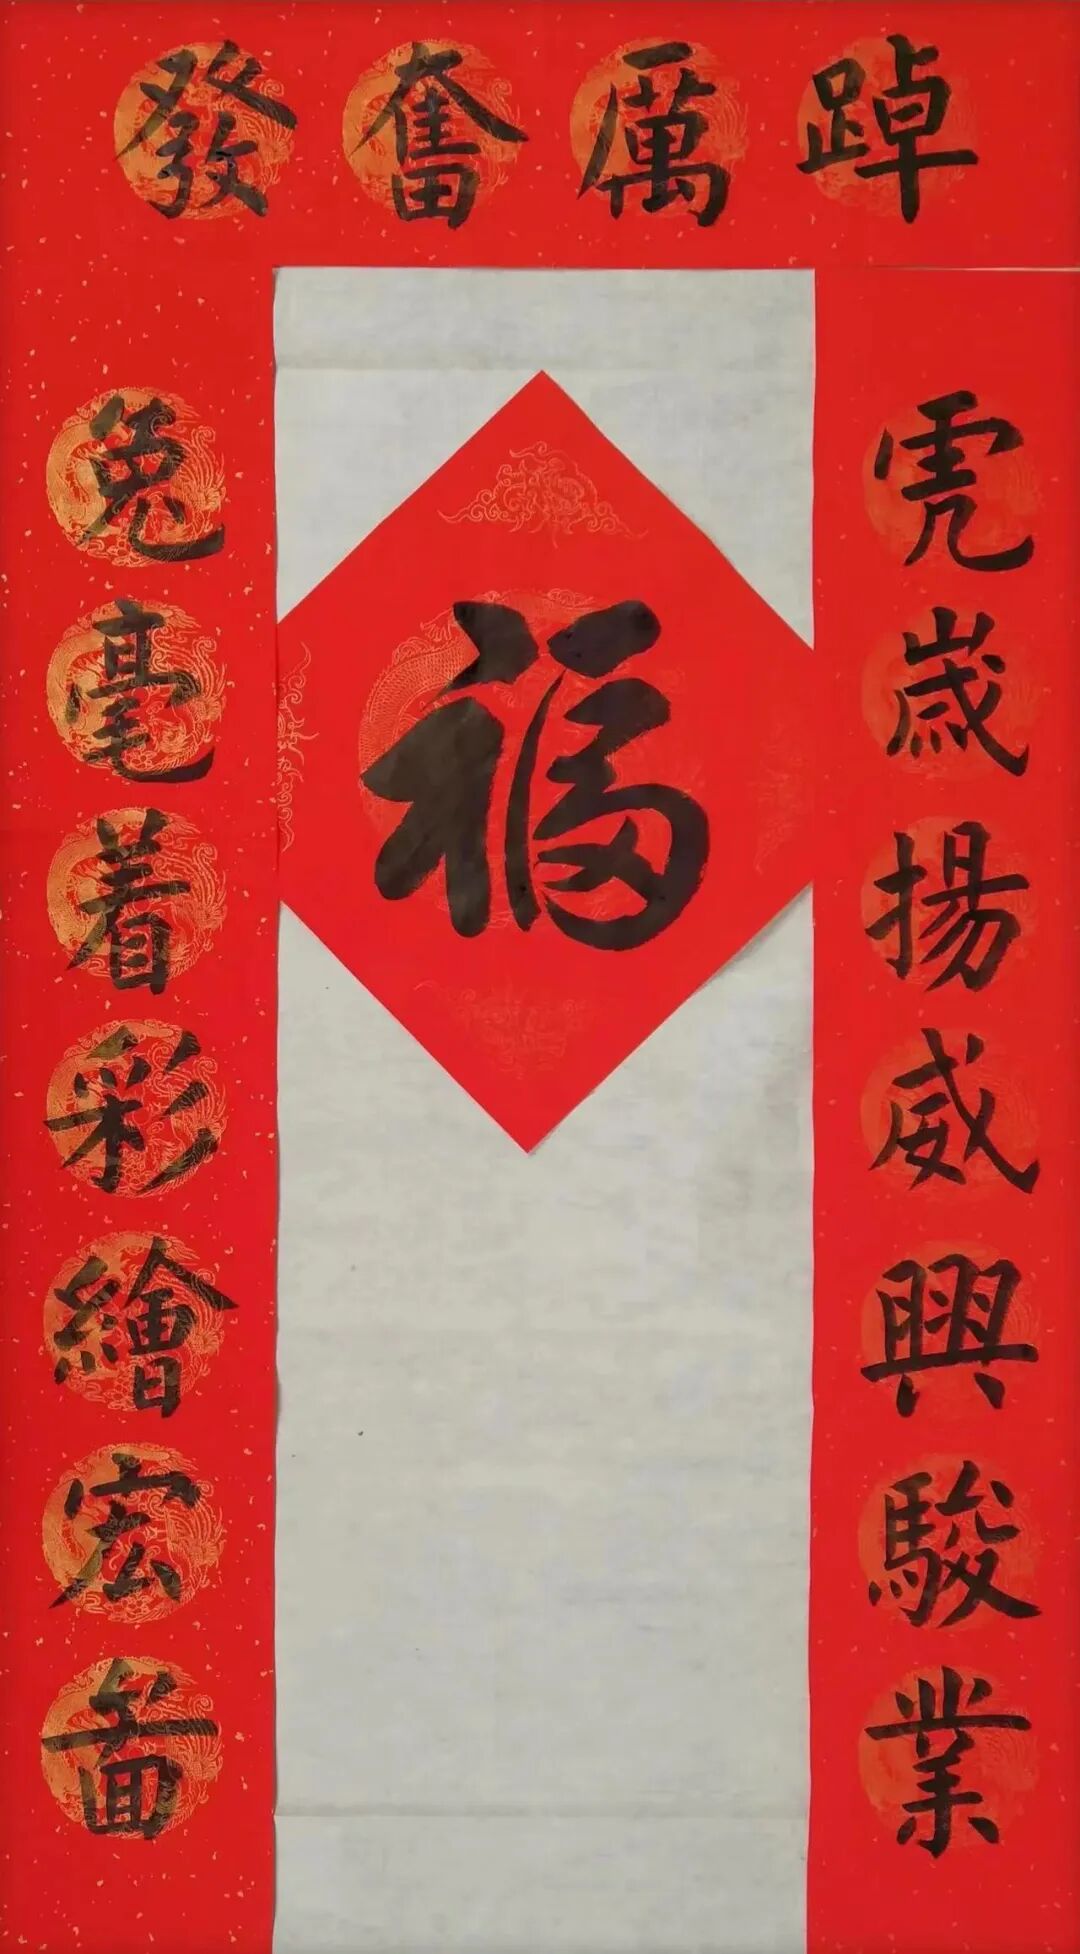 踔厲奮發
虎嵗揚威興駿業
兔毫着彩繪宏圖
福